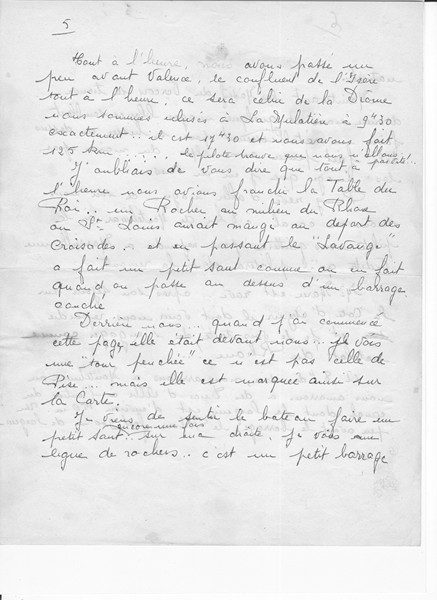 5
Tout à l'heure, nous avons passé un
peu avant Valence, le confluent de l'Isère
tout à l'heure, ce sera celui de la Drôme
nous sommes éclusés à La Mulatière à 9h30
exactement... il est 17h30 et nous avons fait
125 km..... le pilote trouve que nous n'allons
pas vite!..
J'oubliais de vous dire que tout à
l'heure nous avions franchi la Table du
Roi... un Rocher au milieu du Rhône
où St Louis aurait mangé au départ des
Croisades.. et en passant le "Lavangi"
a fait un petit saut comme on en fait
quand on passe au dessus d'un barrage
caché
Derrière nous... quand j'ai commencé
cette page, elle était devant nous... je vois
une "tour penchée" ce n'est pas celle de
Pise... mais elle est marquée ainsi sur
la Carte.
Je viens de sentir le bateau faire
encore une fois
un
petit saut.. sur ma droite, je vois une
ligne de rochers.. c'est un petit barrage